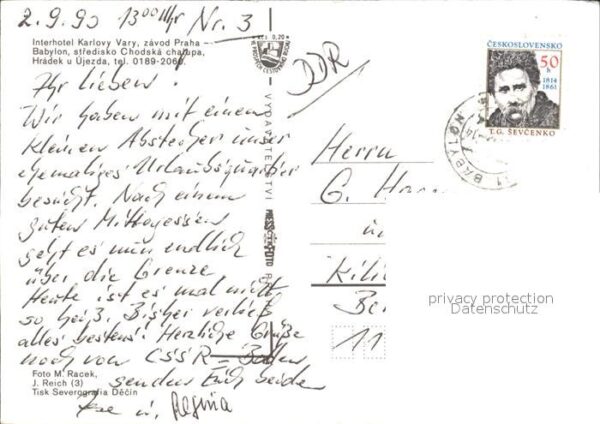 2.9.90 13 00 Uhr Nr. 3
Interhotel Karlovy Vary, závod Praha –
Babylon, středisko Chodská chalupa,
Hrádek u Újezda, tel. 0189-2060.
Kčs 0,20
DDR
Ihr Lieben!
Wir haben mit einem
kleinen Abstecher unser
ehemaliges Urlaubsquartier
besucht. Nach einem
guten Mittagessen
geht es nun endlich
über die Grenze
Heute ist es mal nicht
so heiß. Bisher verlief
alles bestens! Herzliche Grüße
noch von CSSR – Boden
senden Euch beide
u. Regina
Foto M. Racek,
J. Reich (3)
Tisk Severografia Děčín
VYDAVATELSTVÍ
ČESKOSLOVENSKO
50 h
1814
1861
T.G. ŠEVČENKO
BABYLON
Herrn
G.
11
privacy protection
Datenschutz